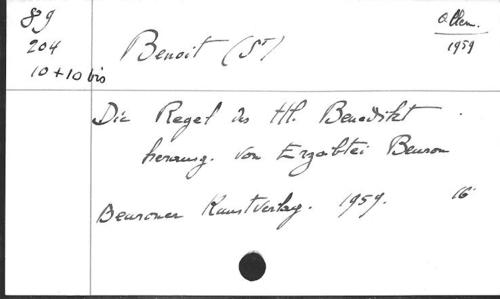 89
204
10+10 bis
Allem.
1959
Benoit (St)
Die Regel des Hl. Benedikt
herausg. von Erzabtei Beuron
Beuroner Kunstverlag. 1959. 16